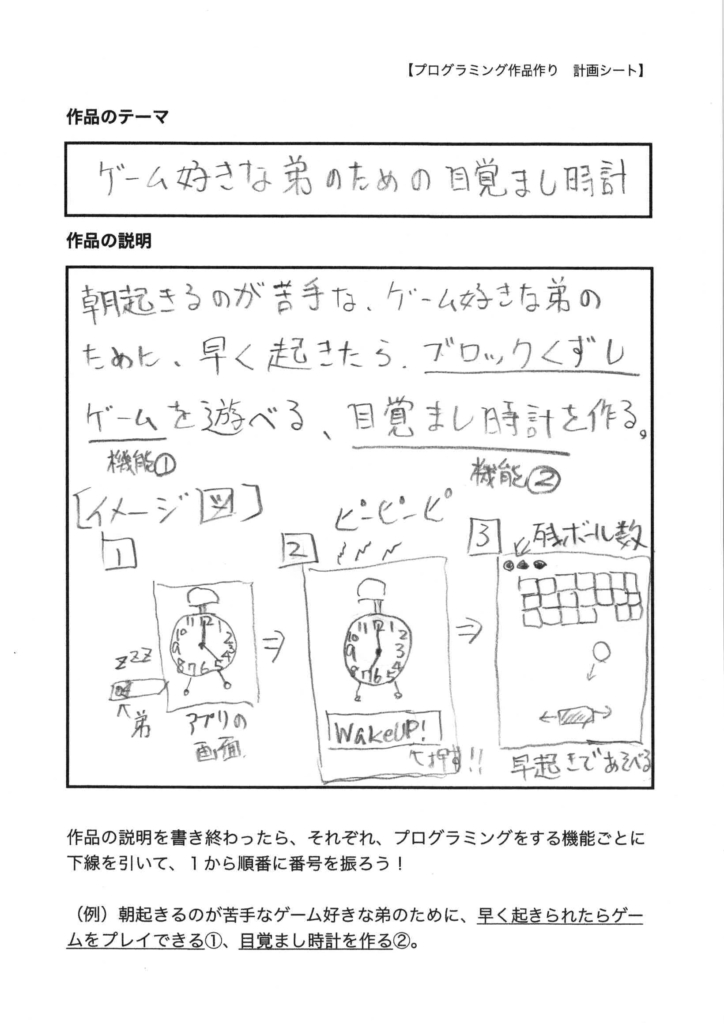 【プログラミング作品作り　計画シート】
作品のテーマ
ゲーム好きな弟のための目覚まし時計
作品の説明
朝起きるのが苦手な、ゲーム好きな弟の
ために、早く起きたら、ブロックくずし
ゲームを遊べる、目覚まし時計を作る。
機能①
機能②
[イメージ図]
ピーピーピ
1
2
3
残ボール数
12
1
2
3
4
5
6
7
8
9
10
11
zzz
弟
アプリの
画面
12
1
2
3
4
5
6
7
8
9
10
11
WakeUP!
押す!!
早起きであそべる
作品の説明を書き終わったら、それぞれ、プログラミングをする機能ごとに
下線を引いて、１から順番に番号を振ろう！
（例）朝起きるのが苦手なゲーム好きな弟のために、早く起きられたらゲー
ムをプレイできる①、目覚まし時計を作る②。